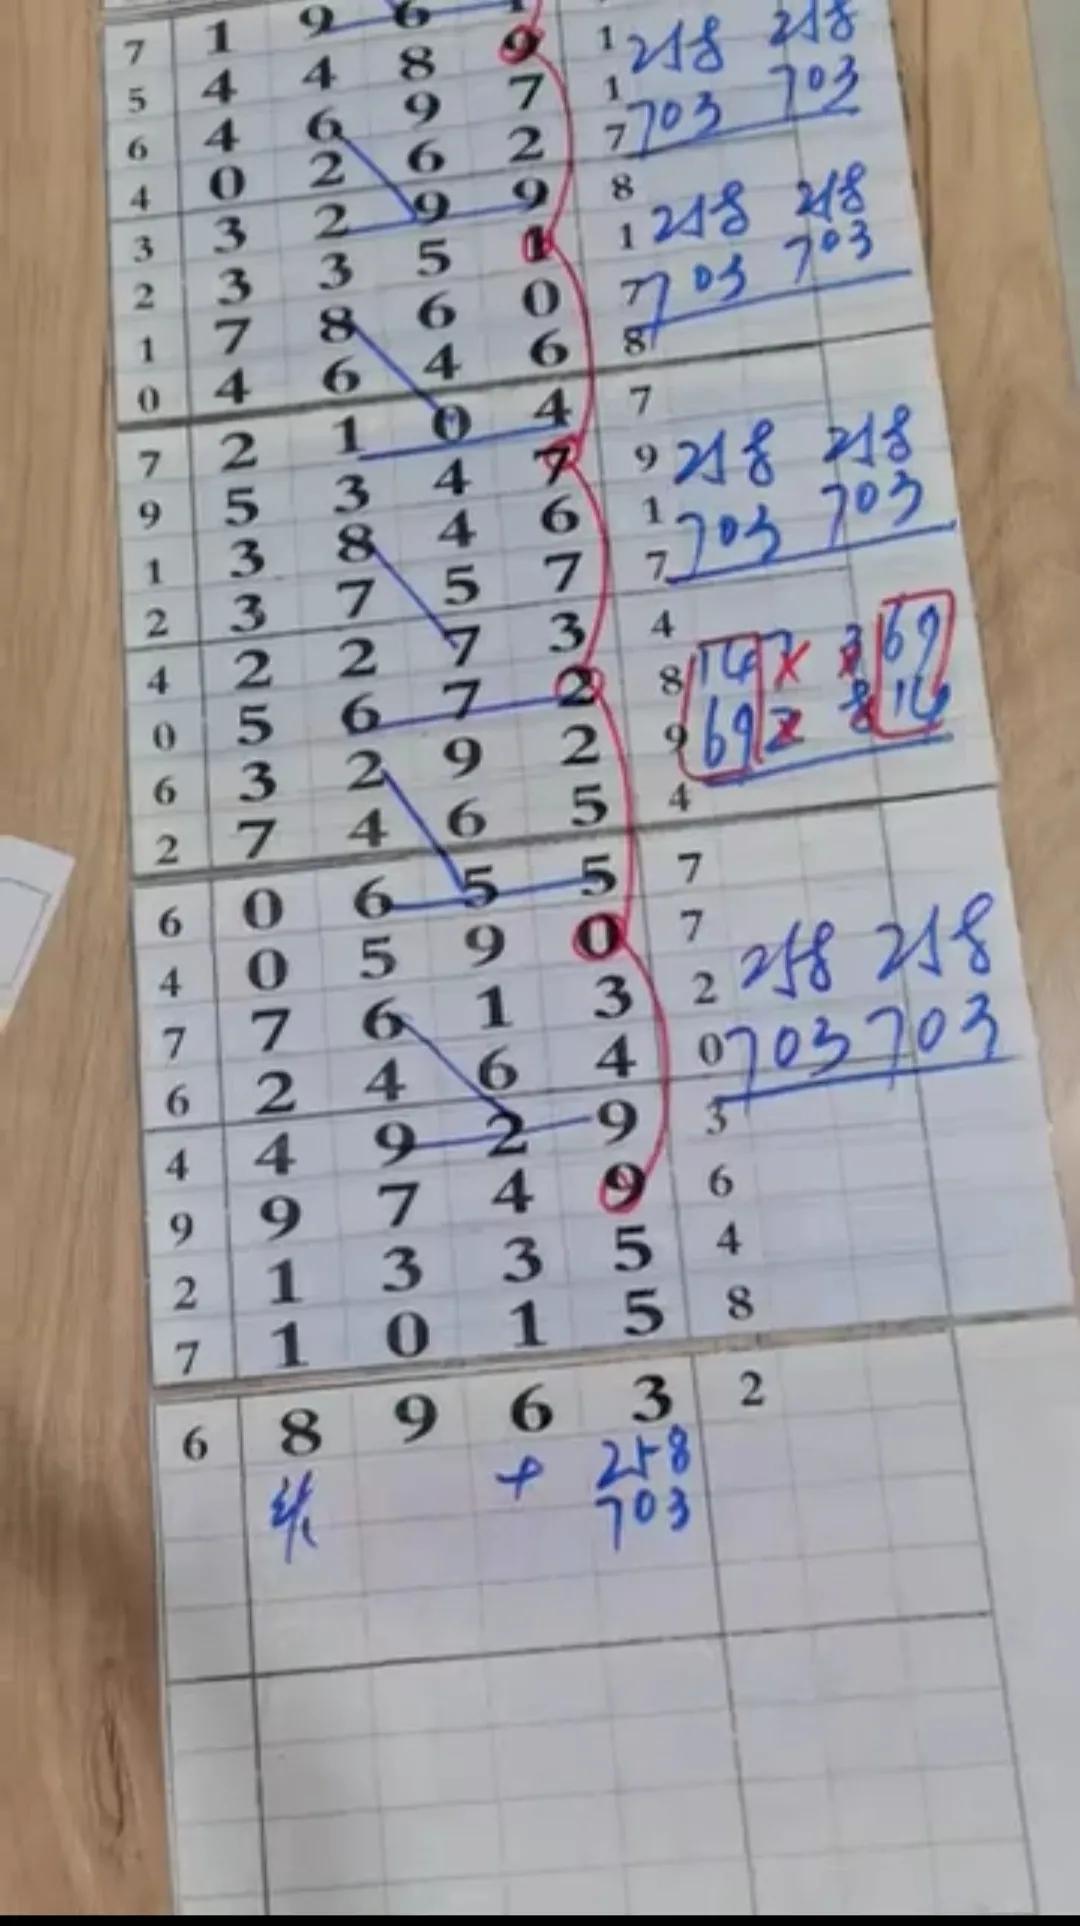 7 1 9 6
5 4 4 8 9 1 258 258
6 4 6 9 7 1 703 703
4 0 2 6 2 7
3 3 2 9 9 8
2 3 3 5 1 1 258 258
1 7 8 6 0 7 703 703
0 4 6 4 6 8
7 2 1 0 4 7
9 5 3 4 7 9 258 258
1 3 8 4 6 1 703 703
2 3 7 5 7 7
4 2 2 7 3 4
0 5 6 7 2 8 147 369
6 3 2 9 2 9 692 814
2 7 4 6 5 4
6 0 6 5 5 7
4 0 5 9 0 7 258 258
7 7 6 1 3 2
6 2 4 6 4 0 703 703
4 4 9 2 9 3
9 9 7 4 9 6
2 1 3 3 5 4
7 1 0 1 5 8
6 8 9 6 3 2
+ 258
703